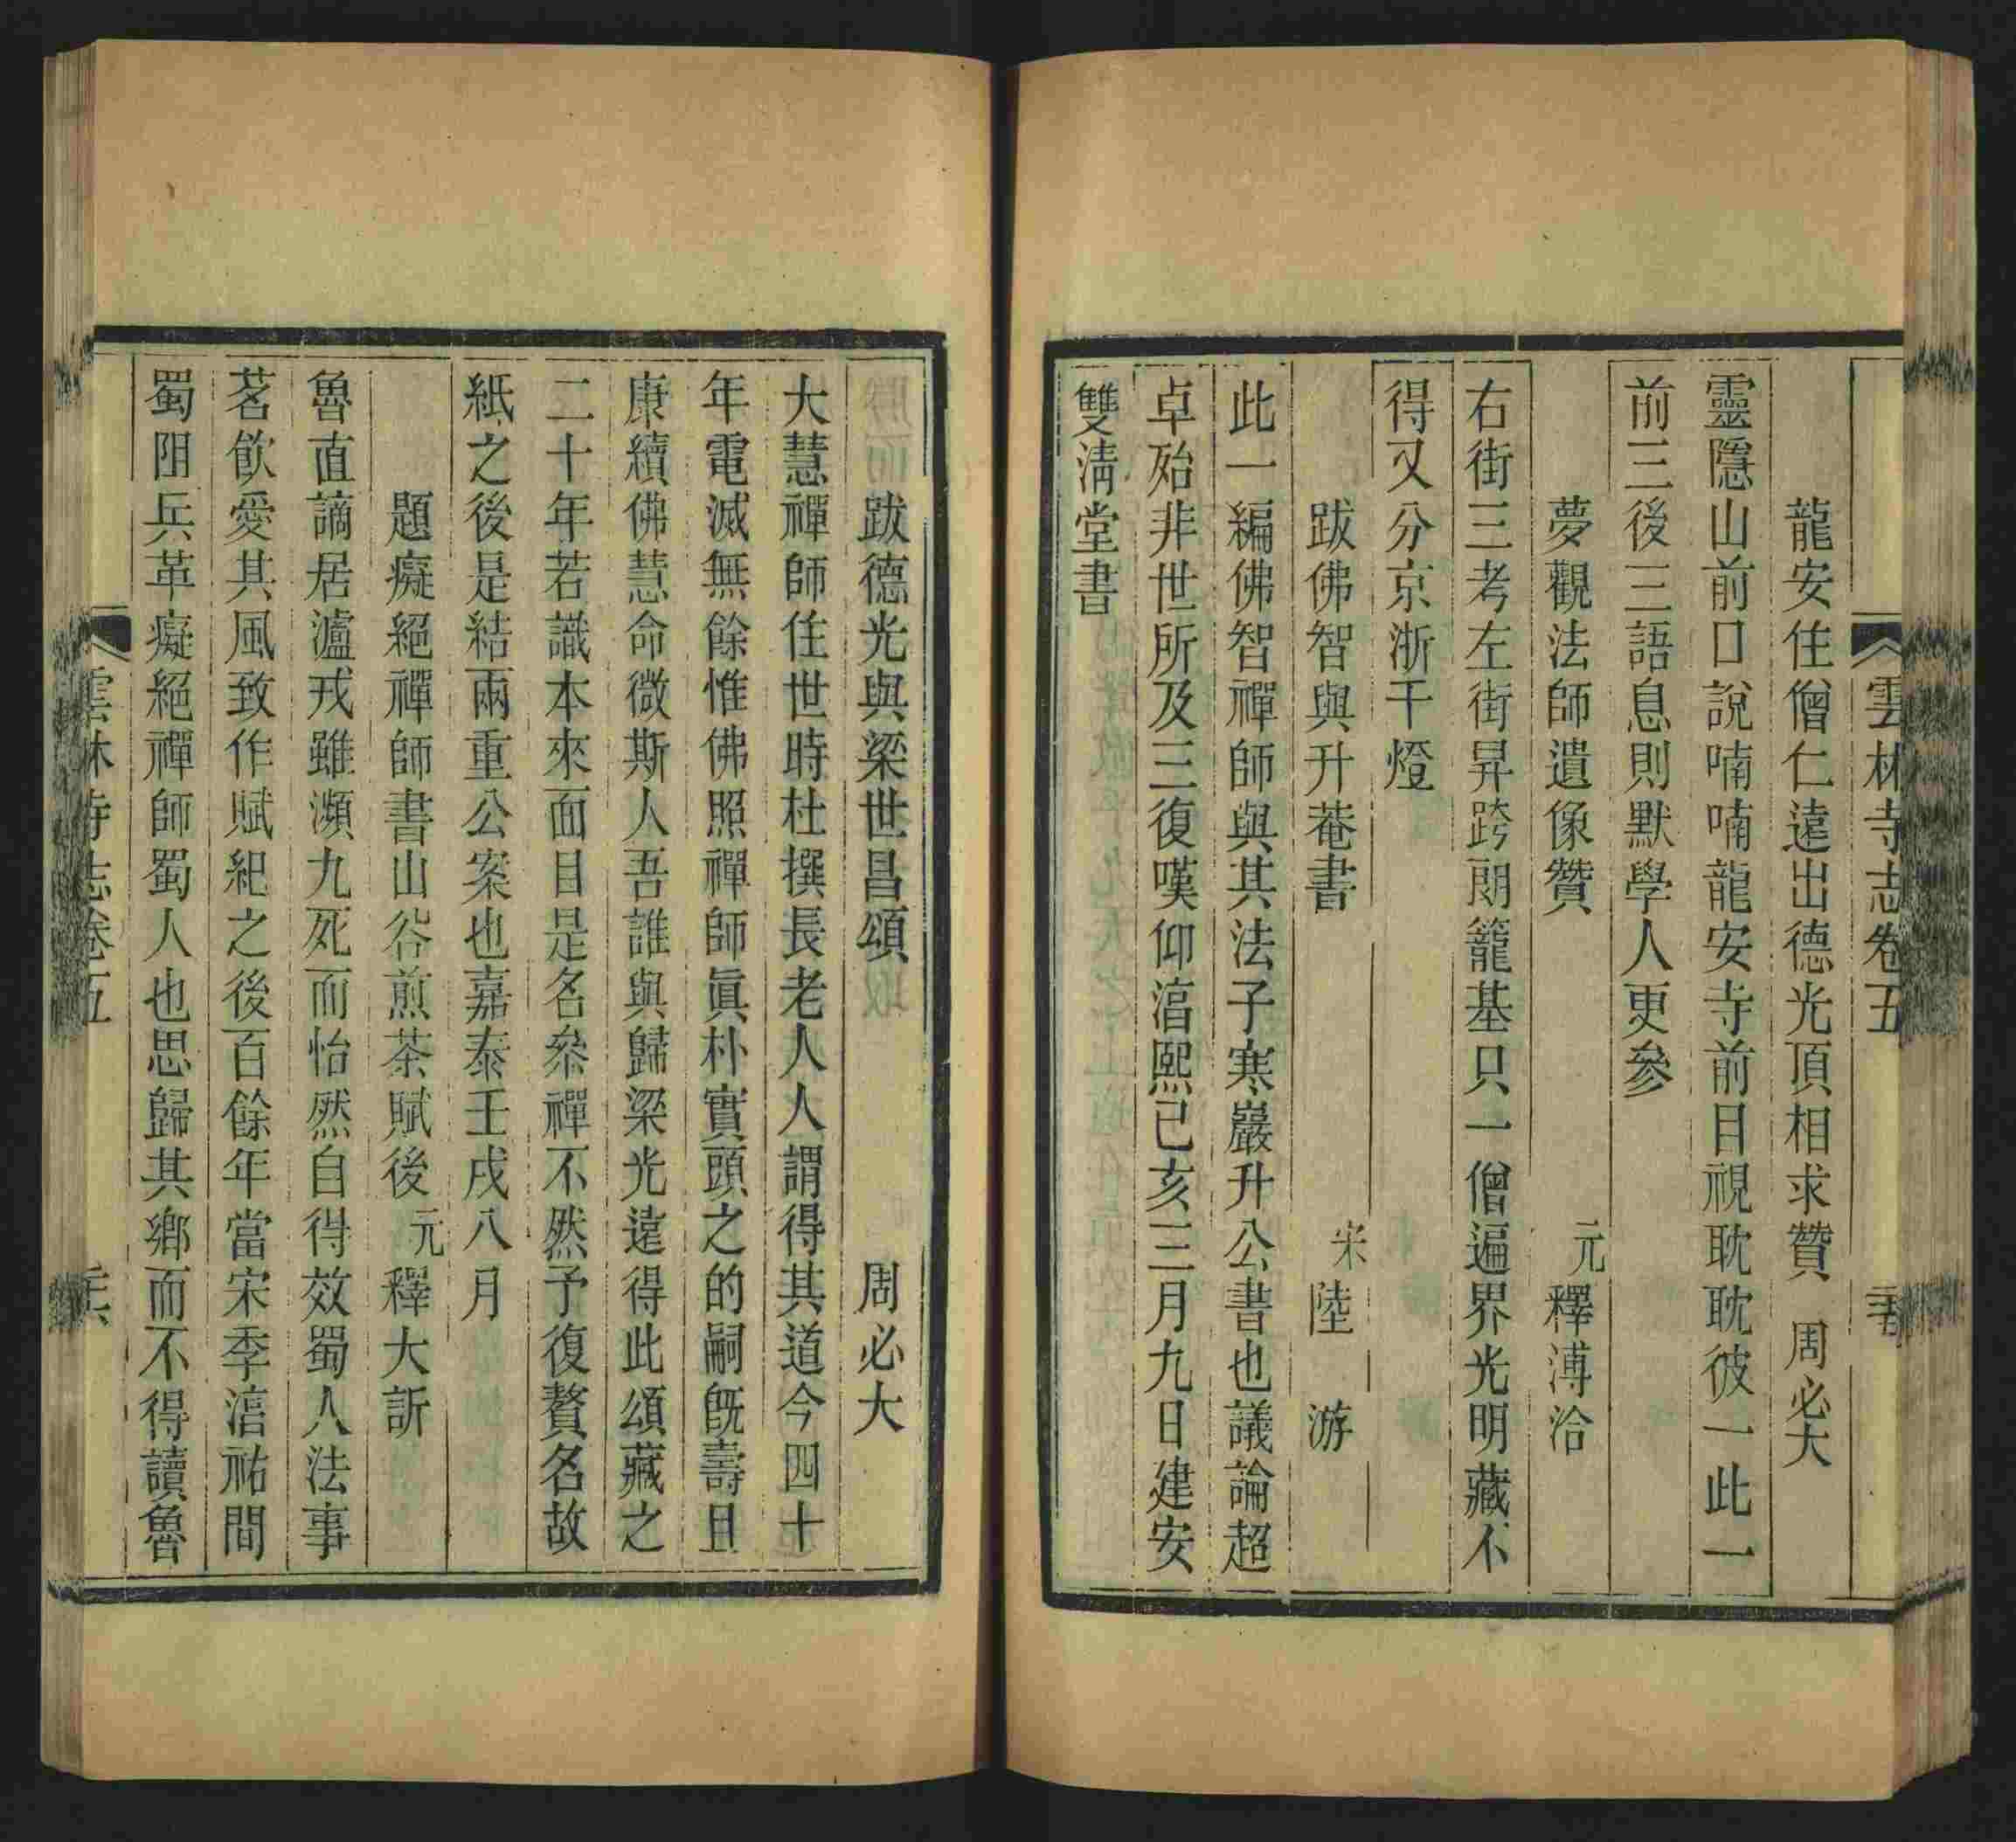 雲林寺志卷五
龍安住僧仁遠出德光頂相求贊 周必大
靈隱山前口說喃喃龍安寺前目視耽耽彼一此一
前三後三語息則默學人更參
夢觀法師遺像贊 元釋溥洽
右街三考左街昇跨朗籠基只一僧遍界光明藏不
得又分京浙千燈
跋佛智與升菴書 宋陸游
此一編佛智禪師與其法子寒巖升公書也議論超
卓殆非世所及三復嘆仰淳熙己亥三月九日建安
雙清堂書
跋德光與梁世昌頌 周必大
大慧禪師住世時杜撰長老人人謂得其道今四十
年電滅無餘惟佛照禪師眞朴實頭之的嗣旣壽且
康續佛慧命微斯人吾誰與歸梁光遠得此頌藏之
二十年若識本來面目是名叅禪不然予復贅名故
紙之後是結兩重公案也嘉泰壬戌八月
題癡絕禪師書山谷煎茶賦後 元釋大訢
魯直謫居瀘戎雖瀕九死而怡然自得效蜀人法事
茗飮愛其風致作賦紀之後百餘年當宋季淳祐間
蜀阻兵革癡絕禪師蜀人也思歸其鄉而不得讀魯
雲林寺志卷五